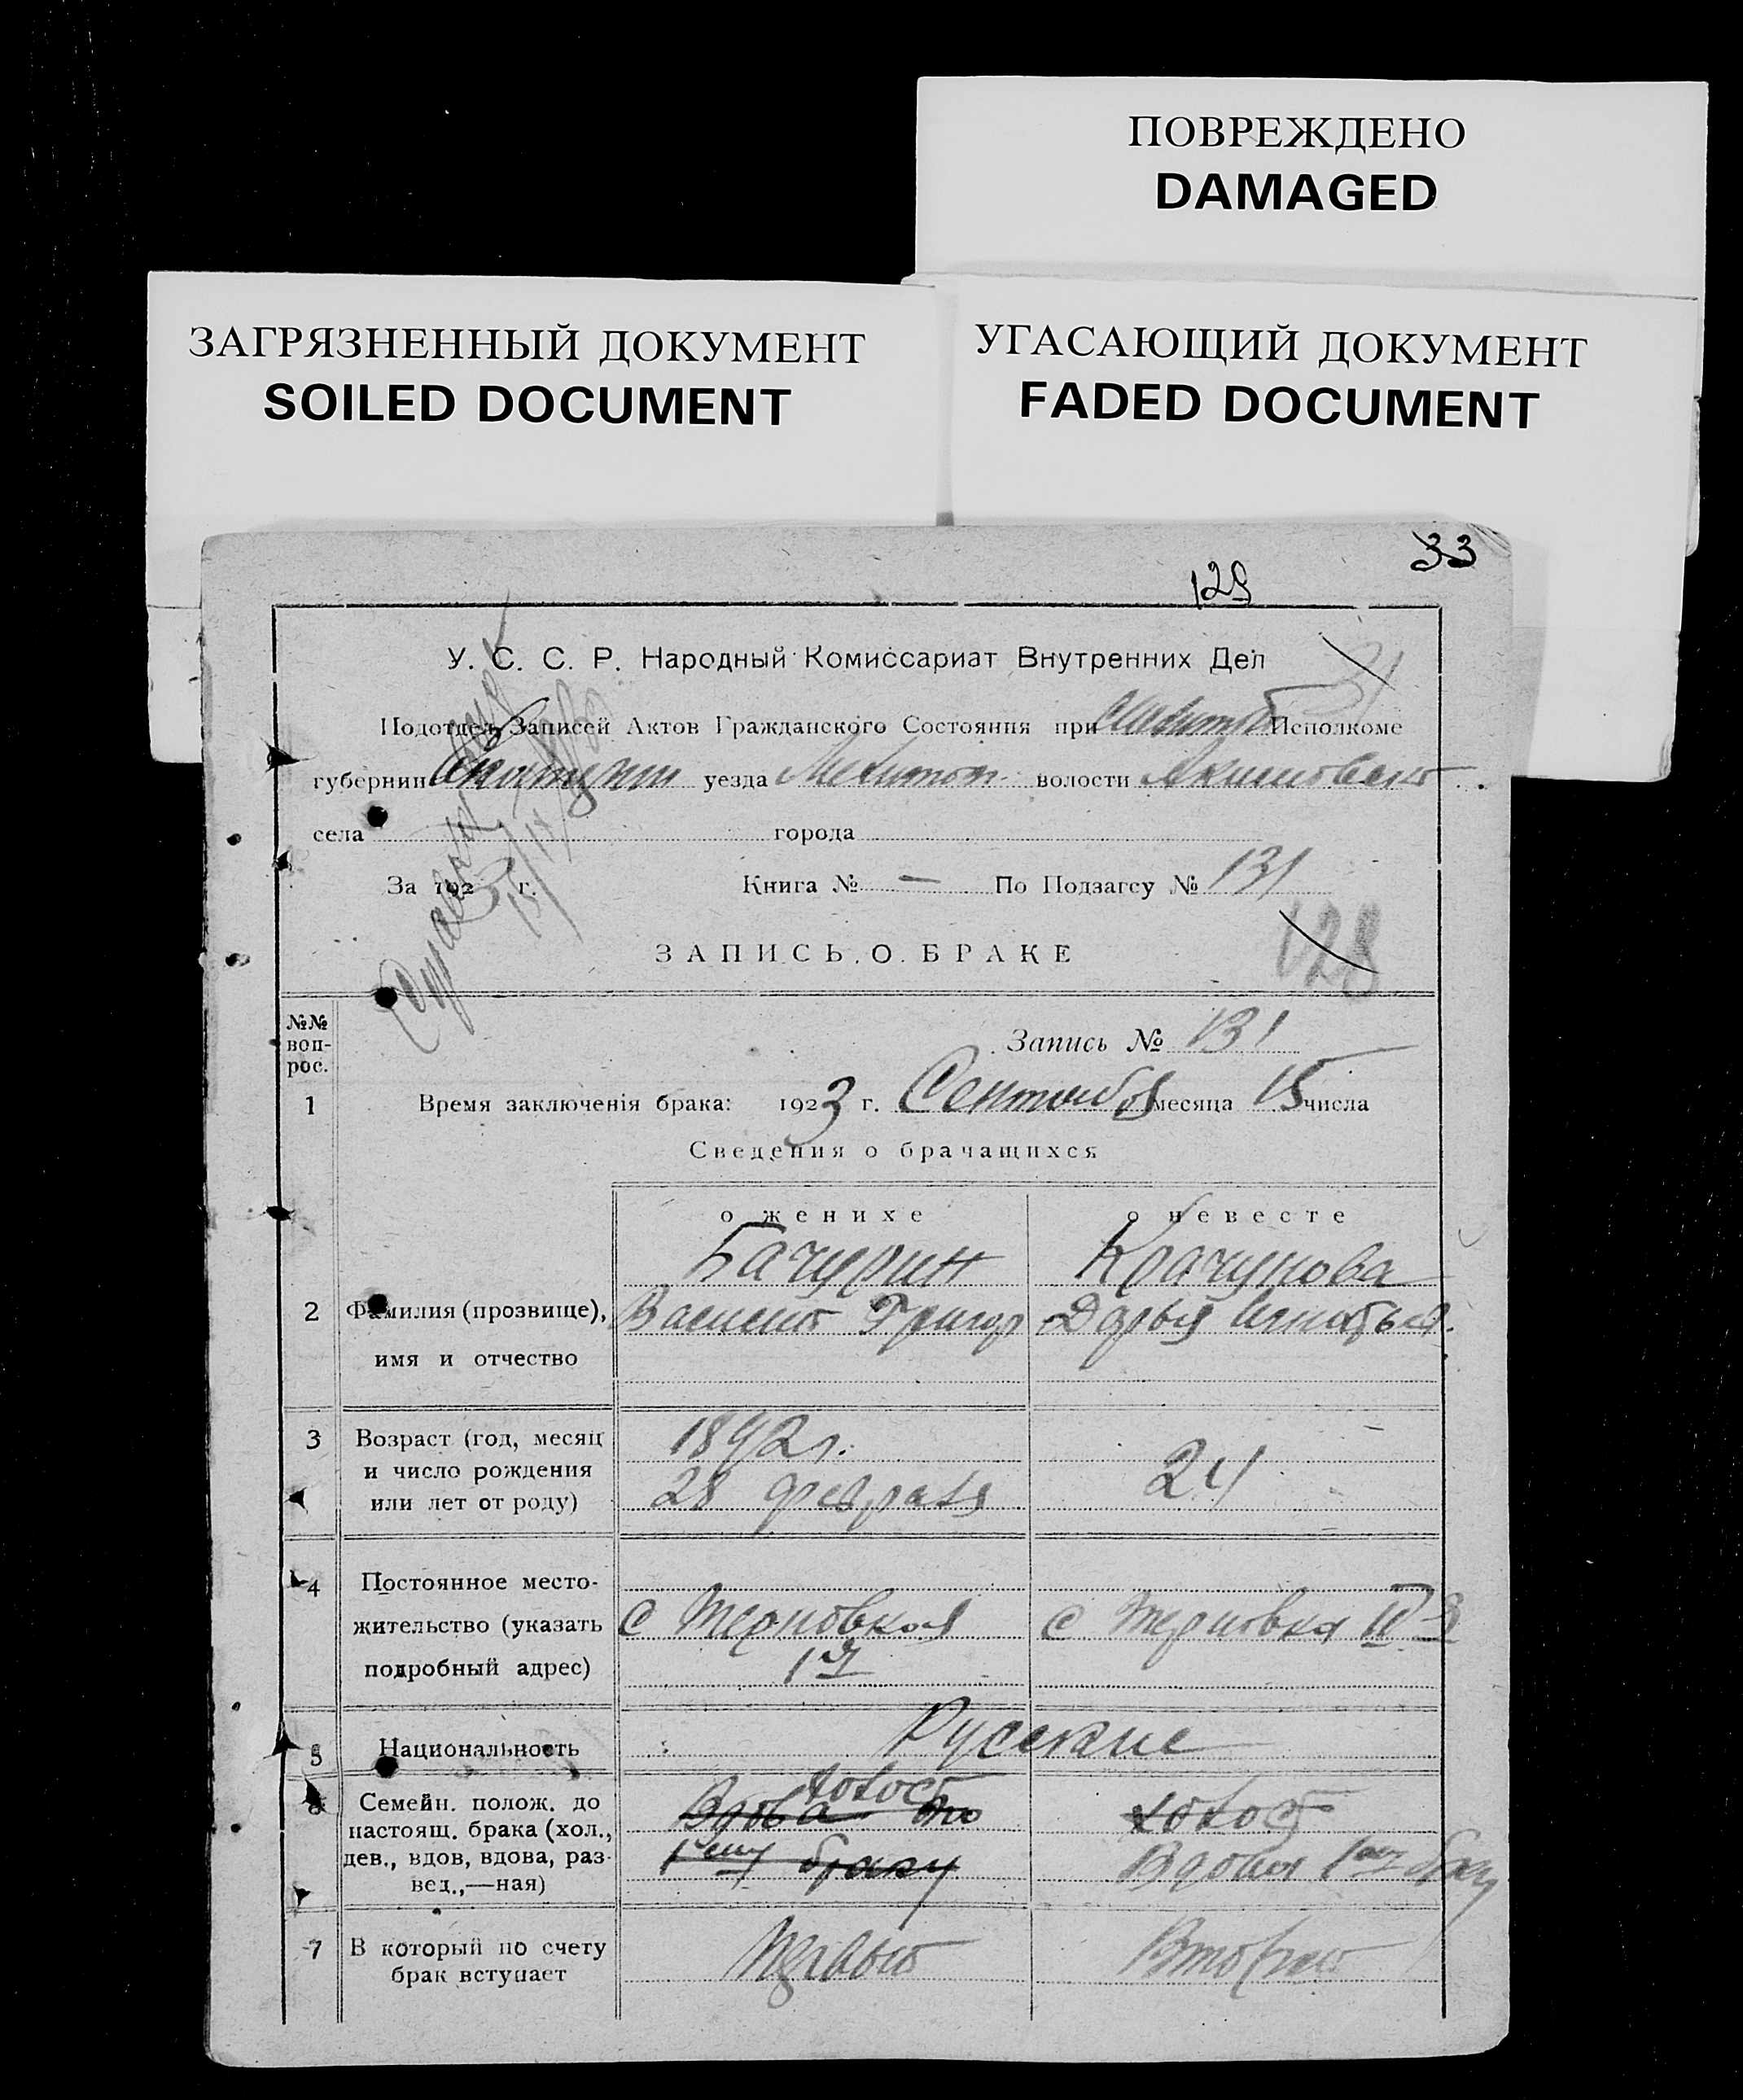 ПОВРЕЖДЕНО
DAMAGED
ЗАГРЯЗНЕННЫЙ ДОКУМЕНТ
SOILED DOCUMENT
УГАСАЮЩИЙ ДОКУМЕНТ
FADED DOCUMENT
33
129
У. С. С. Р. Народный Комиссариат Внутренних Дел
31
Подотдел Записей Актов Гражданского Состояния при Исполкоме
губернии уезда Мелитоп. волости Акимовской
села города
За 1923 г. Книга № — По Подзагсу № 131
128
ЗАПИСЬ О БРАКЕ
№№ вопрос.
Запись № 131
1 Время заключенія брака: 1923 г. Сентября месяца 15 числа
Сведения о брачащихся
о женихе о невесте
Бачурин Крачунова
2 Фамилия (прозвище), имя и отчество Василий Григор Дарья Игнатьев.
3 Возраст (год, месяц и число рождения или лет от роду) 1892 г. 28 февраля 24
4 Постоянное местожительство (указать подробный адрес) с Терновка 1я с Терновка II я
5 Национальность Русские
6 Семейн. полож. до настоящ. брака (хол., дев., вдов, вдова, развед.,—ная) холост Вдова по 1му браку холост Вдова 1му браку
7 В который по счету брак вступает Первый Второй